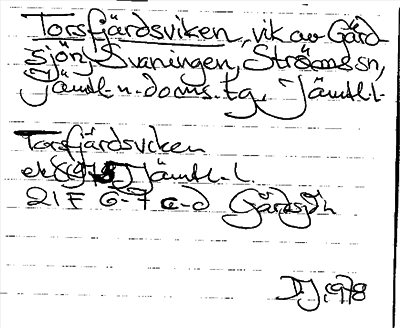 Torsfjärdsviken, vik av Gärd
sjön, Svaningen, Ströms sn,
Jämtl. n. doms. tg, Jämtl. l.
Torsfjärdsviken
ek 1978 Jämtl. l.
21 F 6-7 c-d Gärdsjön
DJ 1978